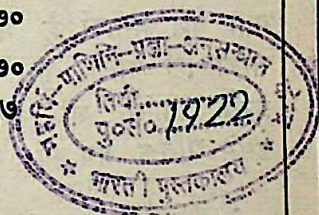 ९०
९०
७
महर्षि-पाणिनि-प्रज्ञा-अनुसन्धान
तिथी..............
पु०सं० 1922
* भारती पुस्तकालय *